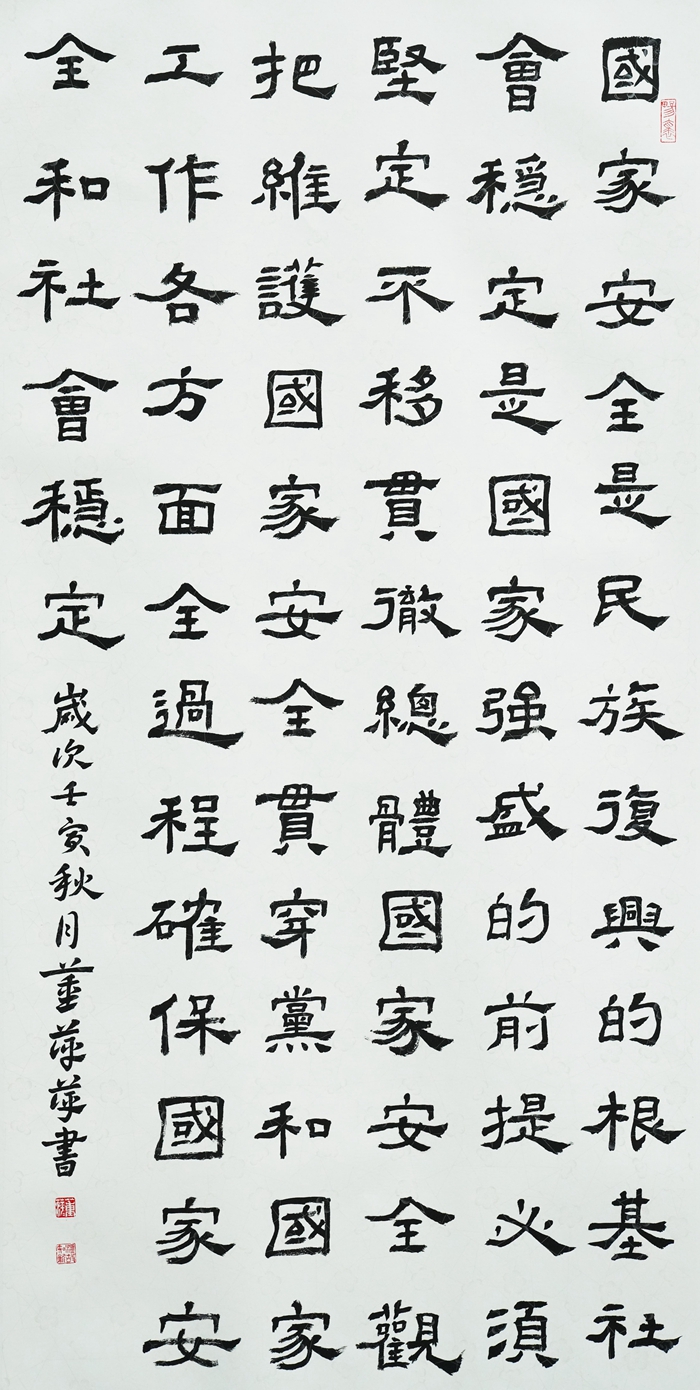 國家安全是民族復興的根基社
會穩定是國家强盛的前提必須
堅定不移貫徹總體國家安全觀
把維護國家安全貫穿黨和國家
工作各方面全過程確保國家安
全和社會穩定
歲次壬寅秋月董萍萍書